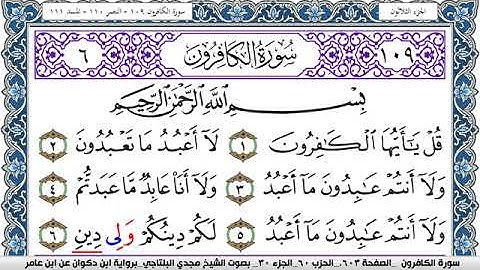 الجزء الثلاثون سورة الكافرون ١٠٩ - النصر ١١٠ - المسد ١١١
١٠٩ سُورَةُ الكَافِرُونَ ٦
بِسْمِ اللَّهِ الرَّحْمَٰنِ الرَّحِيمِ
قُلْ يَٰٓأَيُّهَا ٱلْكَٰفِرُونَ ١ لَآ أَعْبُدُ مَا تَعْبُدُونَ ٢
وَلَآ أَنتُمْ عَٰبِدُونَ مَآ أَعْبُدُ ٣ وَلَآ أَنَا۠ عَابِدٌ مَّا عَبَدتُّمْ ٤
وَلَآ أَنتُمْ عَٰبِدُونَ مَآ أَعْبُدُ ٥ لَكُمْ دِينُكُمْ وَلِى دِينِ ٦
سورة الكافرون _ الصفحة ٦٠٣_ الحزب ٦٠_ الجزء ٣٠_ بصوت الشيخ مجدي البلتاجي_ برواية ابن ذكوان عن ابن عامر